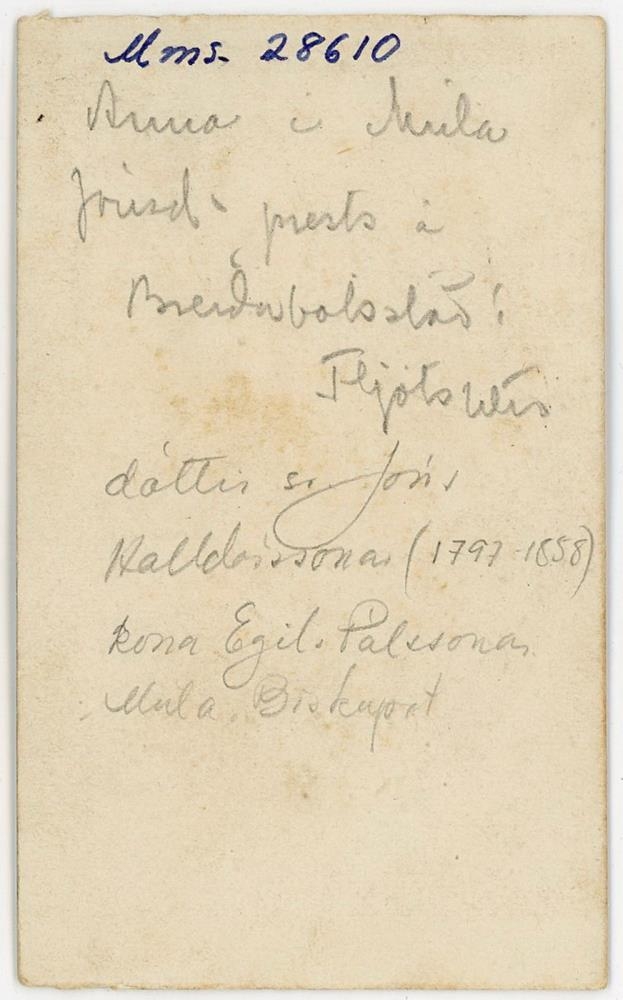 Mms. 28610
Anna í Múla
Jónsd. prests á
Breiðabólsstað í
Fljótshlíð
dóttir sr. Jóns
Halldórssonar (1797-1858)
kona Egils Pálssonar
Múla, Biskupst